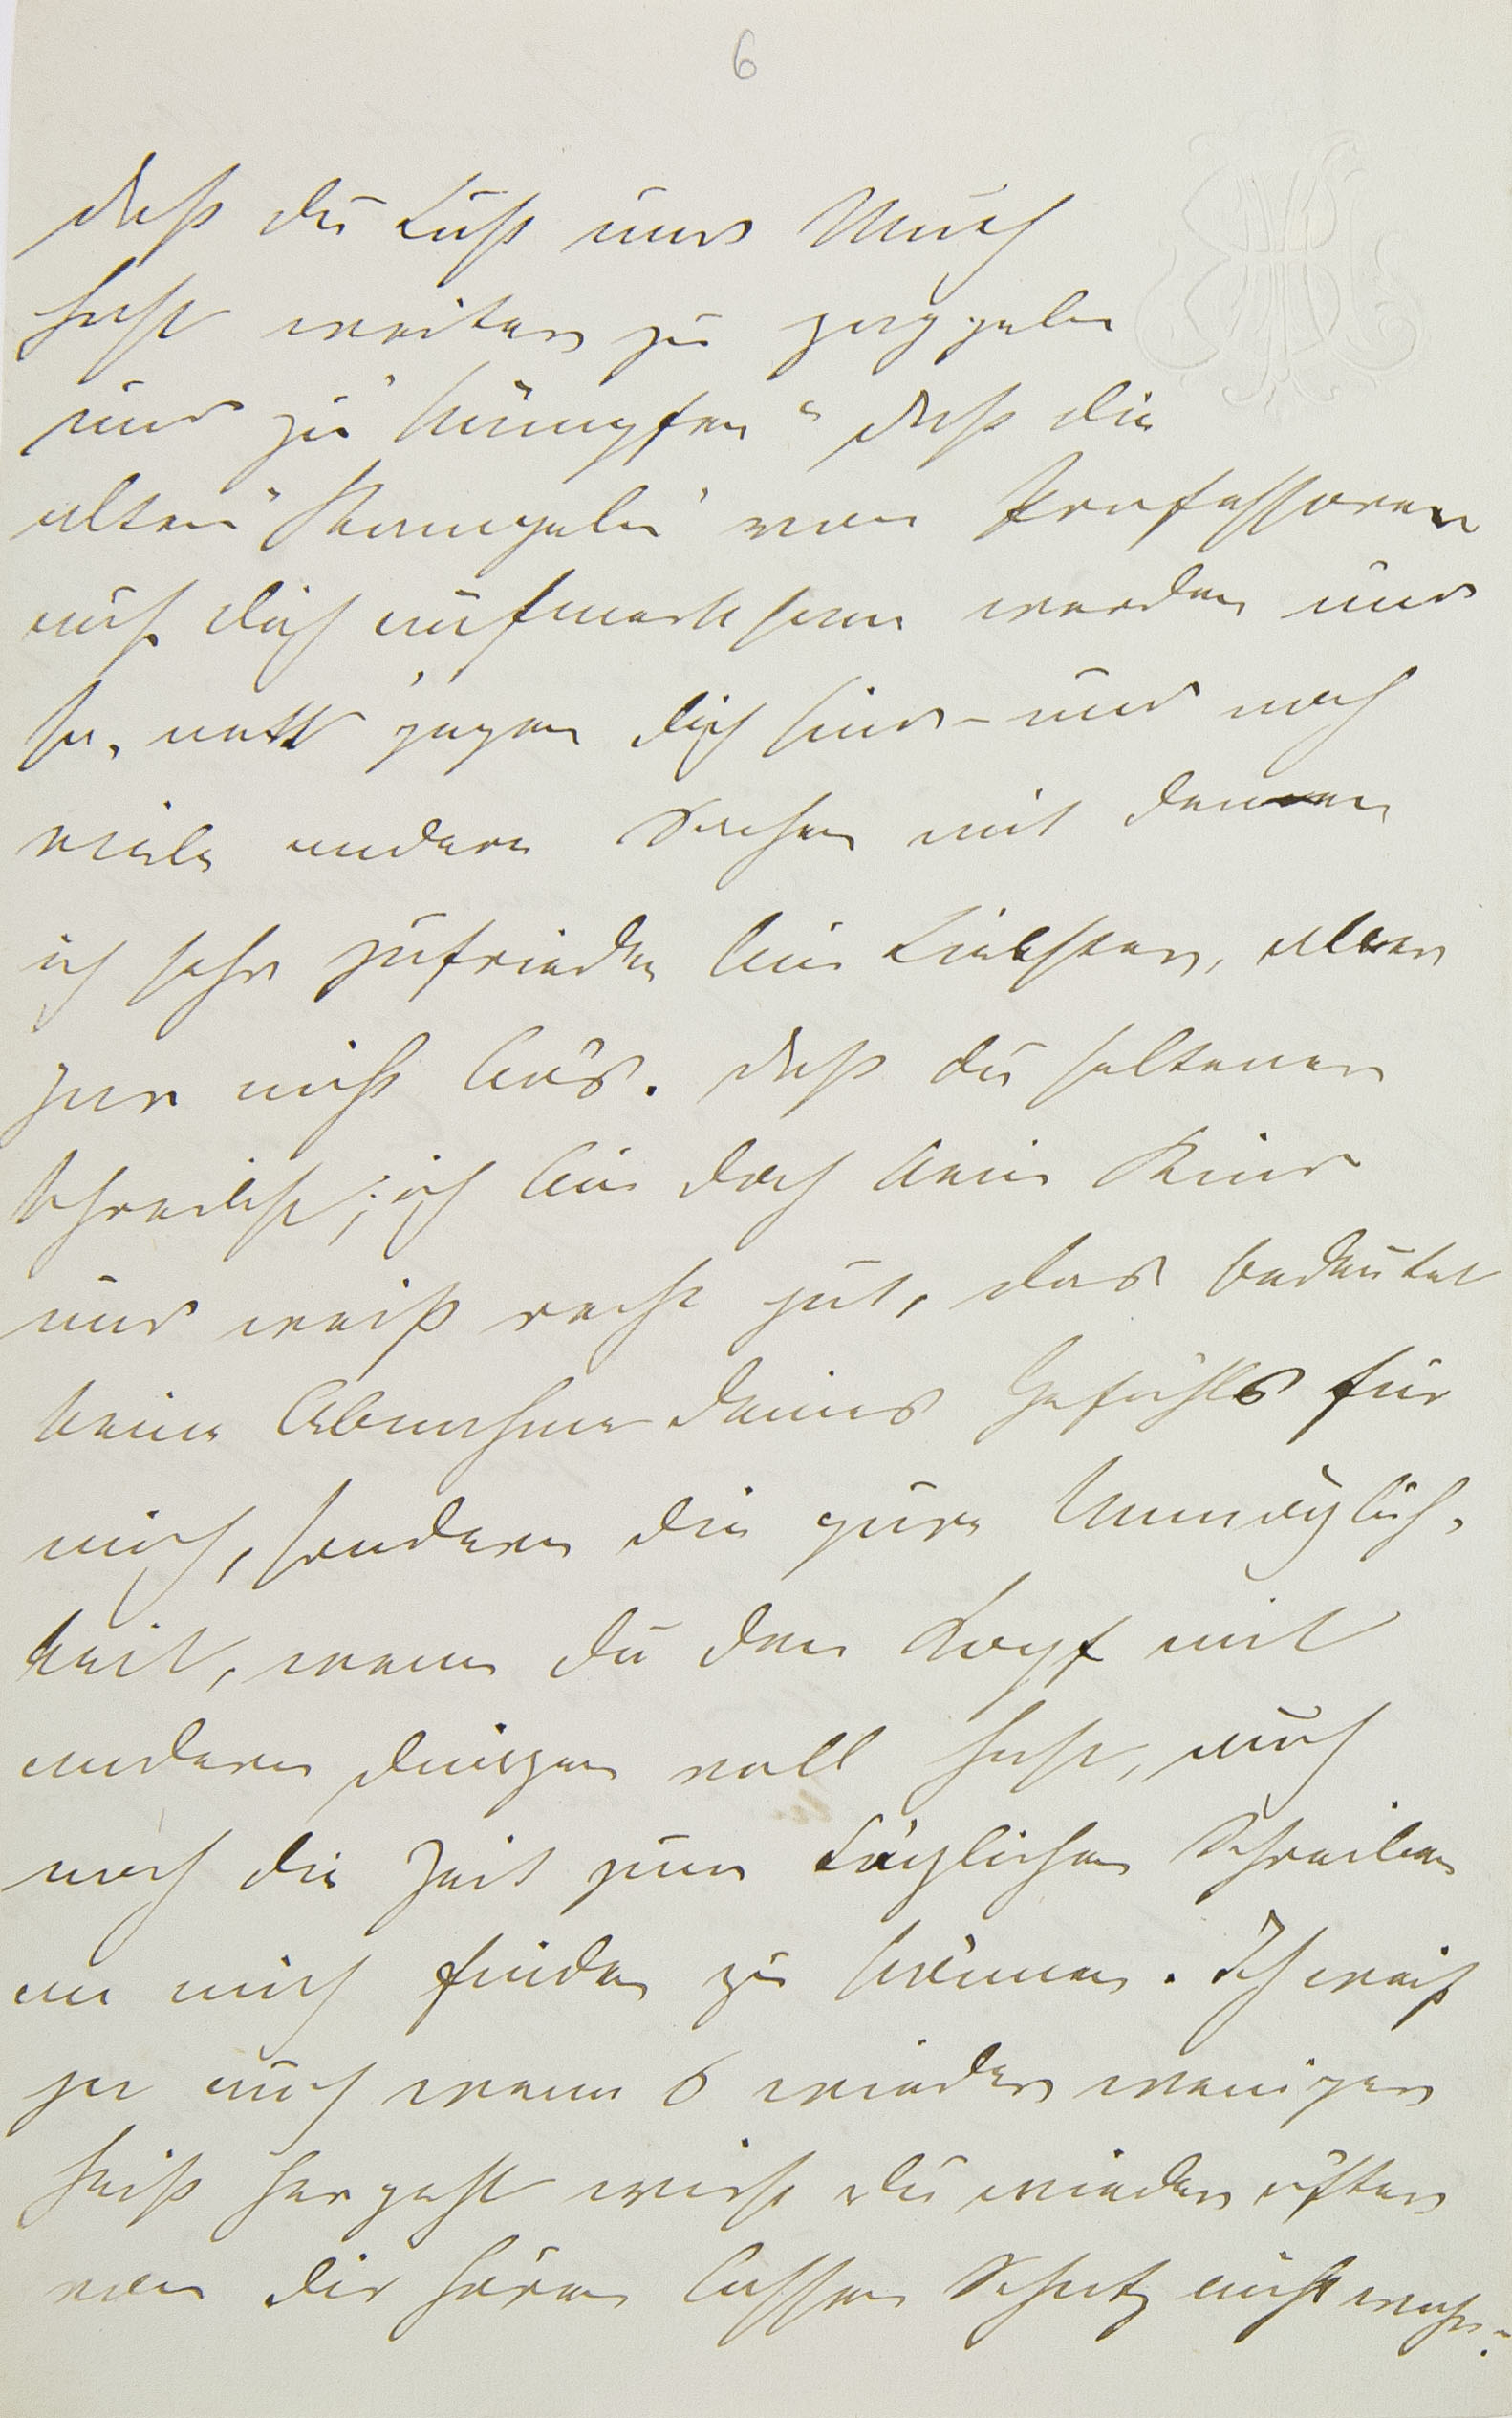 6
daß du Lust und Muth
hast weiter zu zappeln
und zu "kämpfen" daß die
alten "Stammgeln" von Professoren
auf dich aufmerksam werden und
so nett gegen dich sind – und noch
viele andere Sachen mit denen
ich sehr zufrieden bin Liebster, aber
gar nicht bös. daß du seltener
schreibst; ich bin doch kein Kind
und weiß recht gut, das bedeutet
keine Abnahme deines Gefühls für
mich, sondern die pure Unmöglich-
keit, wenn du den Kopf mit
andern dingen voll hast, auch
noch die Zeit zum täglichen Schreiben
an mich finden zu können. Ich weiß
ja auch wenn 6 wieder weniger
heiß hergeht wirst du wieder öfter
von dir hören lassen Schatz nicht wahr?